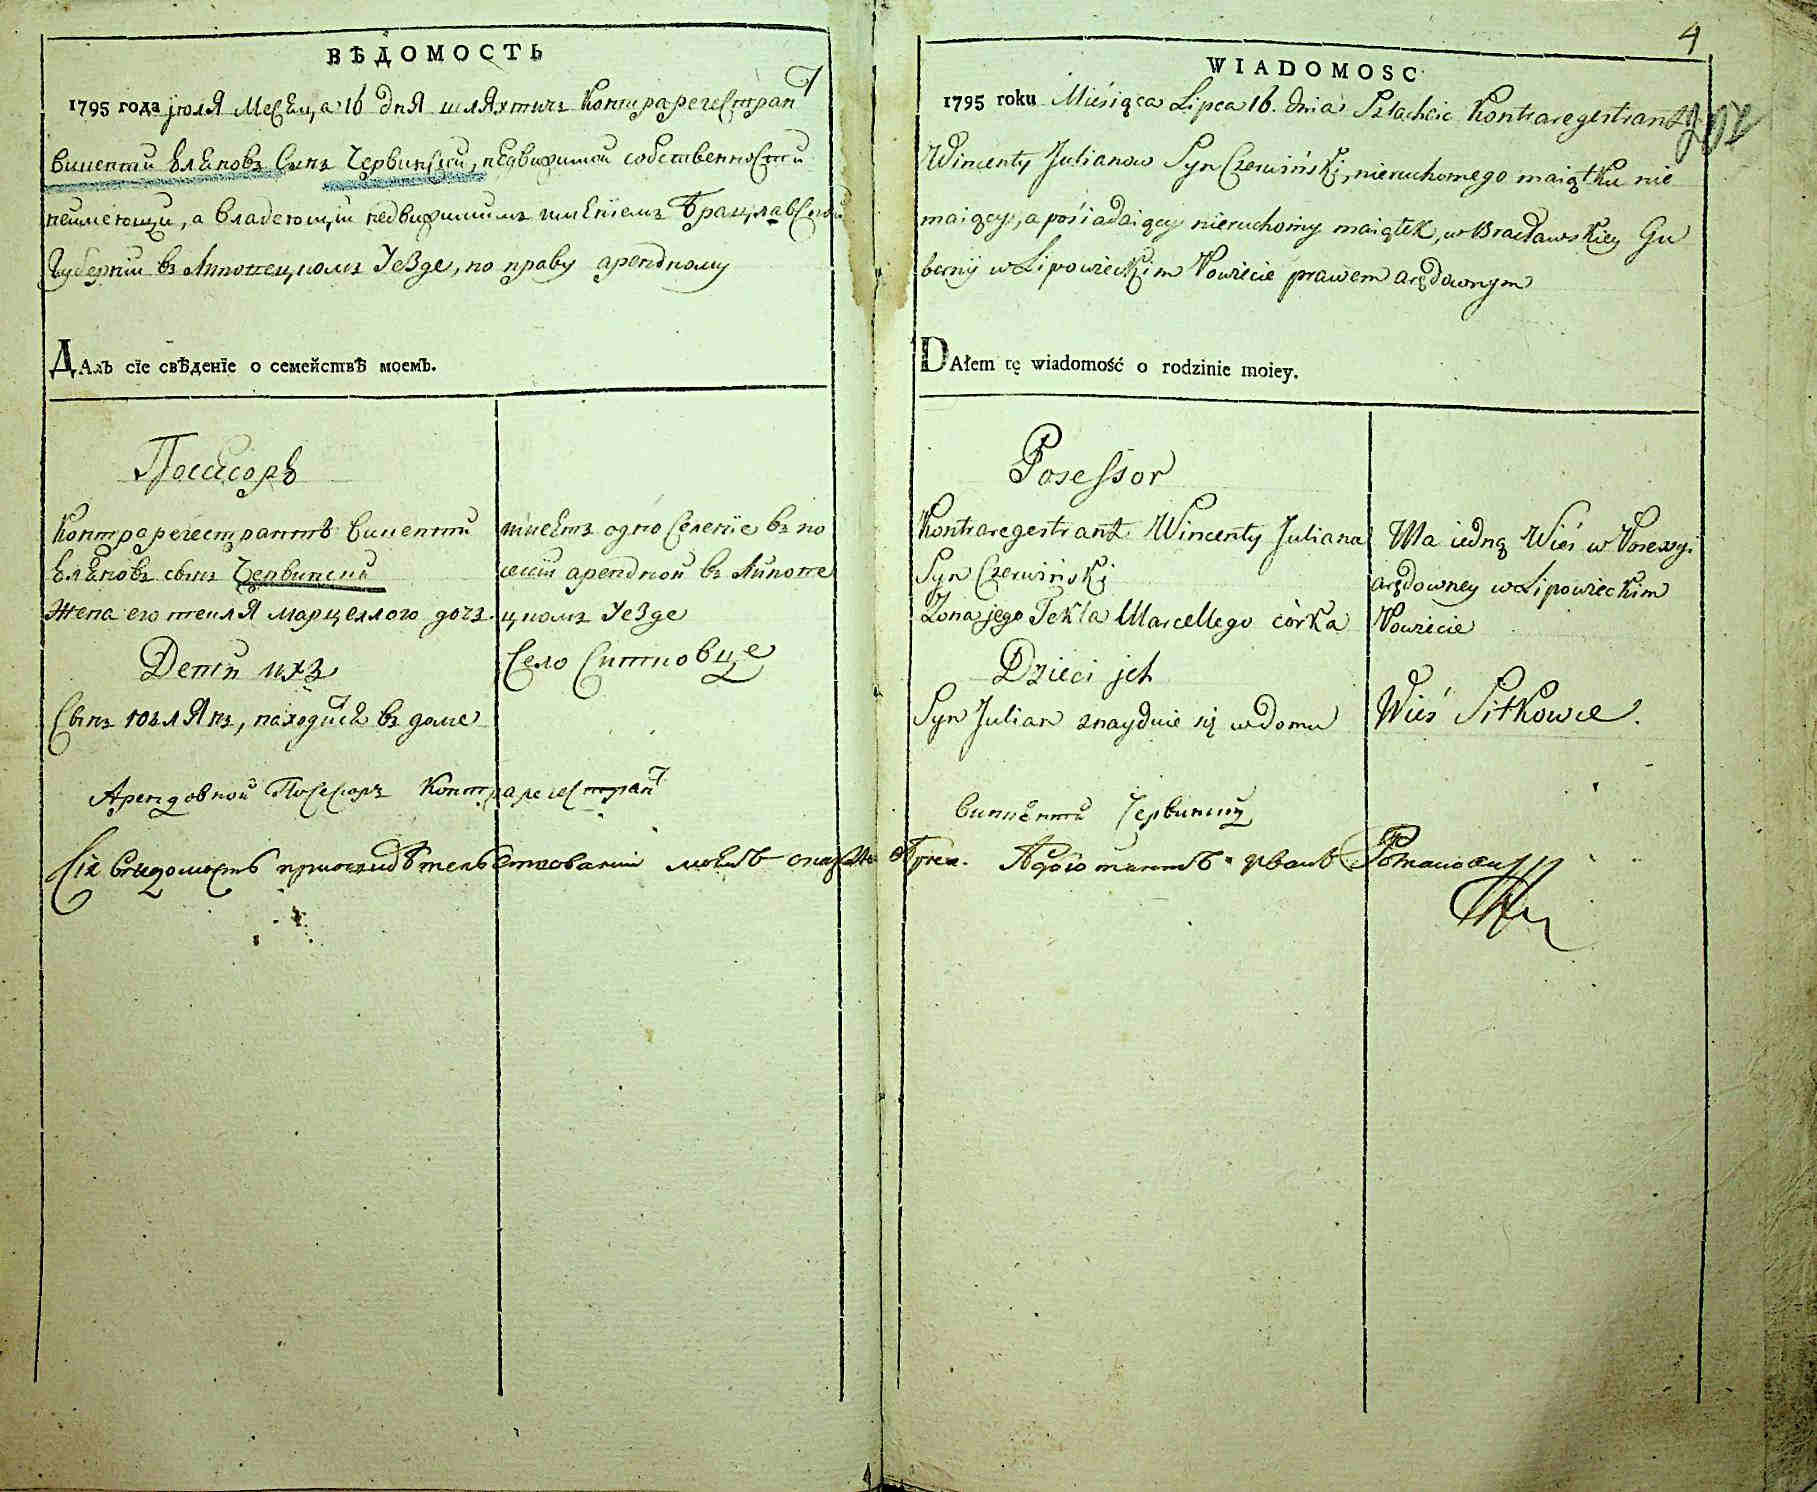 ВѢДОМОСТЬ
1795 года іюля Месеца 16 дня шляхтичъ Контрарегестрант
викентий Еляновъ Сынъ Червинский, недвижимой собственности
неимеющи, а владеющий недвижимимъ имениемъ Брацлавской
Губернии въ Липовецкомъ Уезде, по праву арендному
ДАлъ сїе свѣденїе о семействѣ моемъ.
Посесоръ
Контрарегестрантъ викентий
Еляновъ сынъ Червинский
Жена его текля марцеллого дочъ
Дети ихъ
Сынъ юлянъ, находится въ доме
имеетъ одно Селение въ по
сесии арендной въ Липове
цкомъ Уезде
Село Ситковце
Арендовной Посесоръ Контрарегестрант
викенти Червински
4
WIADOMOSC
1795 roku Miesiąca Lipca 16. dnia Szlachcic Kontraregestrant
Wincenty Julianow Syn Czerwiński, nieruchomego maiątku nie
maiący, a posiadaiący nieruchomy maiątek, w Bracławskiey Gu
bernij w Lipowieckim Powiecie prawem arędownym
DAłem tę wiadomość o rodzinie moiey.
Posessor
Kontraregestrant Wincenty Juliana
Syn Czerwiński
Zona jego Tekla Marcellego córka
Dzieci jch
Syn Julian znayduie się w domu
Ma iedną Wieś w Posessyi
arędowney w Lipowieckim
Powiecie
Wieś Sitkowce.